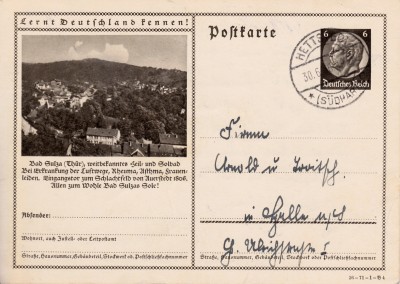 Lernt Deutschland kennen!
Bad Sulza (Thür), weitbekanntes Heil- und Solbad
Bei Erkrankung der Luftwege, Rheuma, Asthma, Frauen-
leiden. Eingangstor zum Schlachtfeld von Auerstedt 1806.
Allen zum Wohle Bad Sulzas Sole!
Absender:
Wohnort, auch Zustell- oder Leitpostamt
Straße, Hausnummer, Gebäudeteil, Stockwerk od. Postschließfachnummer
Postkarte
6 6
Deutsches Reich
HETTS
30.6
(SÜDHAR
Firma
Arnold u.
in Halle a/S
Gr. Ulrichstraße 1
Straße, Hausnummer, Gebäudeteil, Stockwerk od. Postschließfachnummer